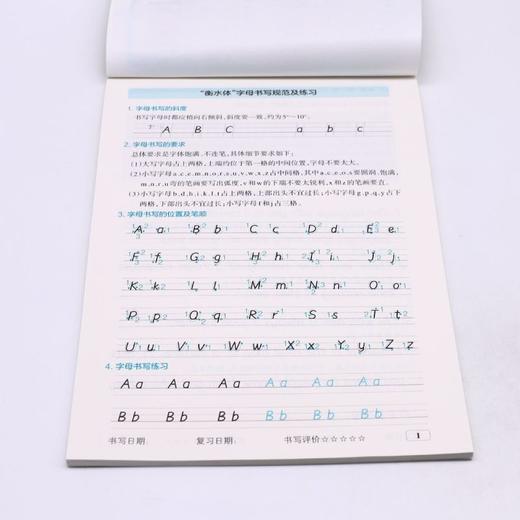 “衡水体”字母书写规范及练习
1. 字母书写的斜度
书写字母时都应稍向右倾斜，斜度要一致，约为5°~10°。
A B C a b c
2. 字母书写的要求
总体要求是字体饱满、不连笔，具体细节要求如下：
(1)大写字母占上两格，上端约位于第一格的中间位置，字母不要太大。
(2)小写字母a、c、e、m、n、o、r、s、u、v、w、x、z占中间格，其中a、c、e、o、s要圆润、饱满，
m、n、r、u弯的笔画要写出弧度，v和w的下端不要太锐利，x和z的笔画要直。
(3)小写字母b、d、h、i、k、l、t占上两格，上部出头不宜过长；小写字母g、p、q、y占下
两格，下部出头不宜过长；小写字母f和j占三格。
3. 字母书写的位置及笔顺
A a B b C c D d E e
F f G g H h I i J j
K k L l M m N n O o
P p Q q R r S s T t
U u V v W w X x Y y Z z
4. 字母书写练习
Aa Aa Aa Aa Aa Aa
Bb Bb Bb Bb Bb Bb
书写日期: 复习日期: 书写评价☆☆☆☆☆ 1